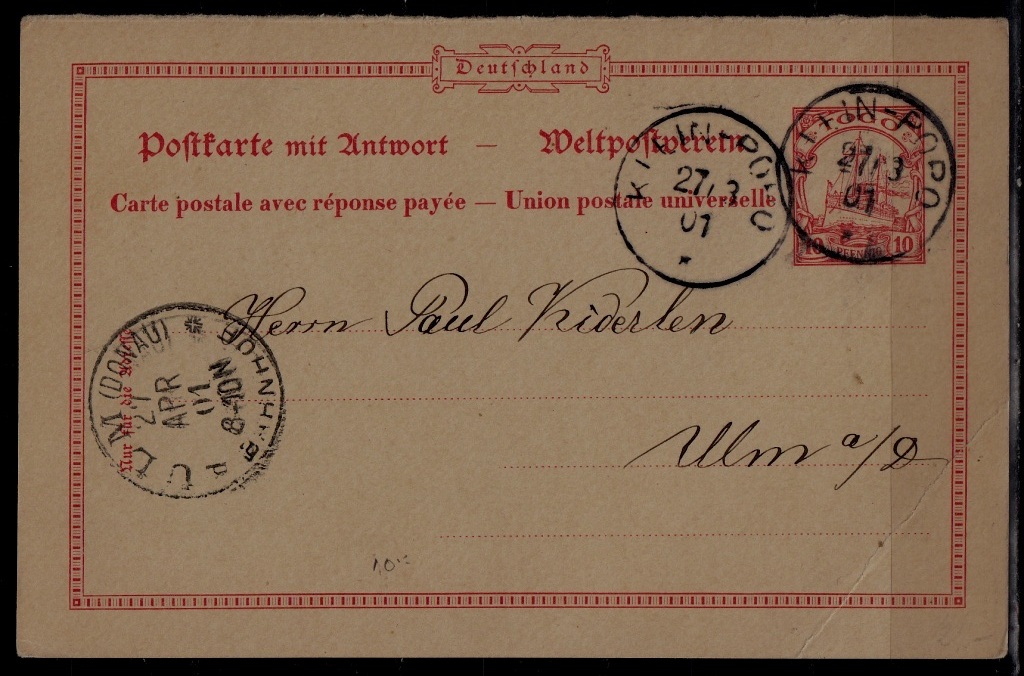 Deutschland
Postkarte mit Antwort — Weltpostverein
Carte postale avec réponse payée — Union postale universelle
KLEIN-POPO
27/3
01
*
KLEIN-POPO
27/3
01
* *
10 PFENNIG 10
Herrn Paul Kiderlen
Ulm a/D
Nur für die
ULM (DONAU) * BAHNHOF
27
APR
01
8-10N